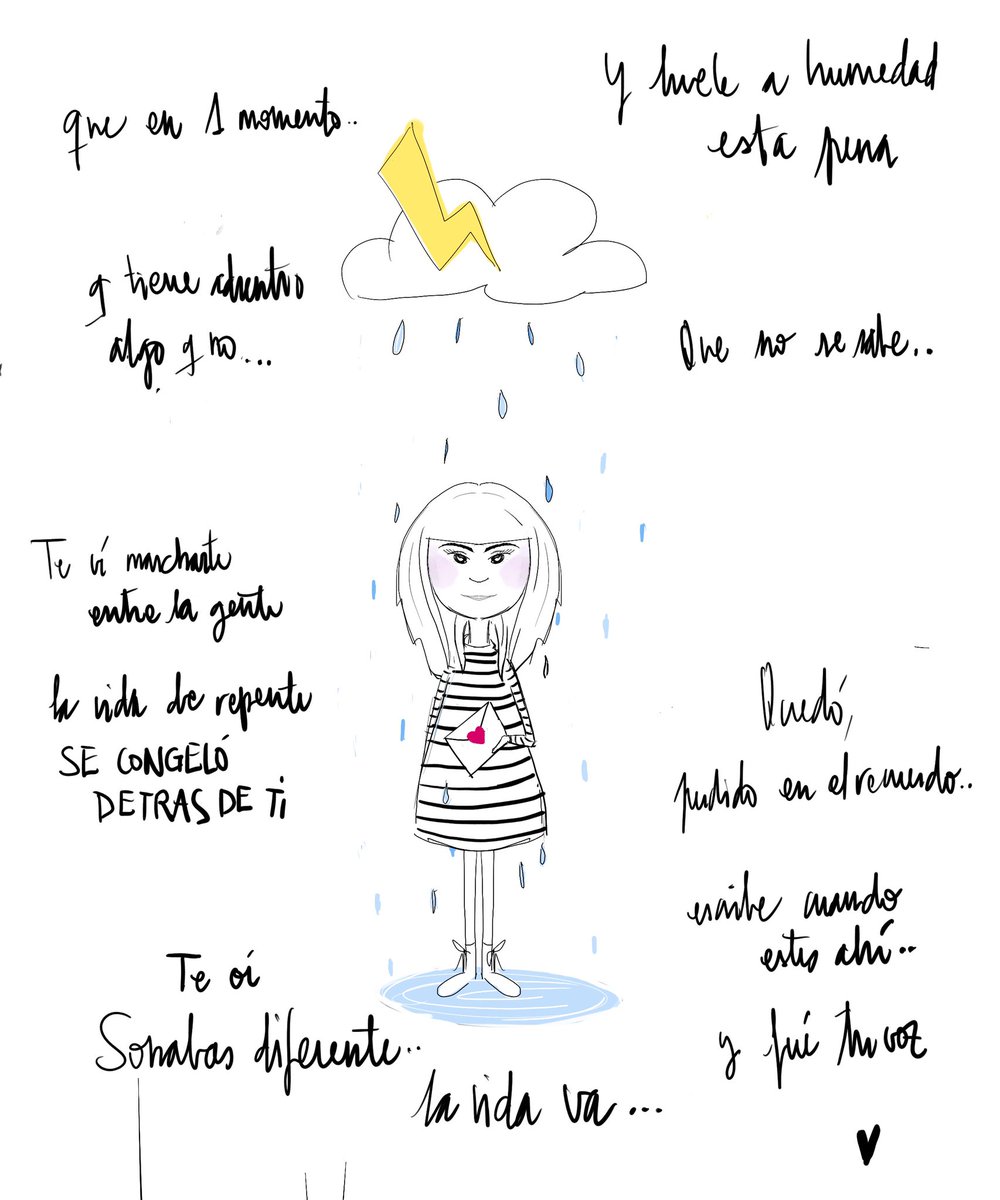 que en 1 momento..
Y huele a humedad
esta pena
q tiene adentro
algo q no...
Que no se sabe..
Te ví marcharte
entre la gente
la vida de repente
SE CONGELÓ
DETRAS DE TI
Quedó,
perdido en el recuerdo..
escribe cuando
estes ahí..
Te oí
Sonabas diferente..
y fué tu voz
la vida va...